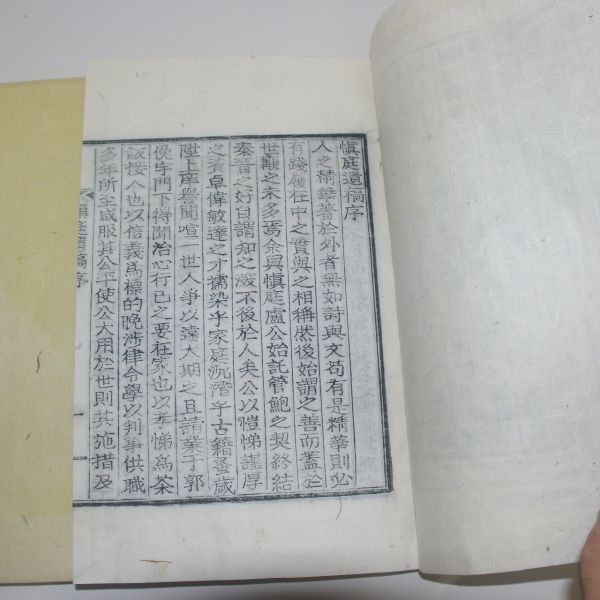 愼庭遺稿序
人之精華著於外者無如詩與文苟有是精華則必
有踐履在中之實與之相稱然後始謂之善而蓋於
世觀之未多焉余與愼庭盧公始託管鮑之契終結
秦晉之好自謂知之深不後於人矣公以愷悌謹厚
之姿卓偉敏達之才擩染乎家庭沉潛乎古籍蚤歲
陞上庠譽聞喧一世人爭以遠大期之且請業于郭
俛宇門下得聞治心行己之要在家也以孝悌爲茶
飯接人也以信義爲標的晩涉律令學以判事供職
多年所至咸服其公平使公大用於世則其施措及
愼庭遺稿序
一